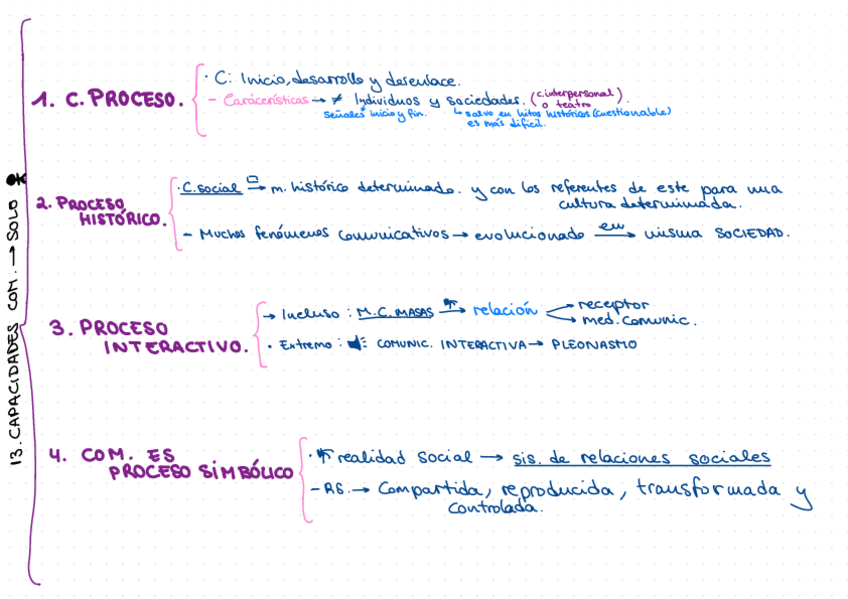 13. CAPACIDADES COM. → SOLO
1. C. PROCESO.
· C: Inicio, desarrollo y desenlace.
- Carácerísticas → ≠ Individuos y sociedades. (c.interpersonal o teatro).
señales inicio y fin.
↳ salvo en hitos históricos (cuestionable)
es más difícil.
2. PROCESO
HISTÓRICO.
· C.social → m. histórico determinado. y con los referentes de este para una
cultura determinada.
- Muchos fenómenos comunicativos → evolucionado en→ misma SOCIEDAD.
3. PROCESO
INTERACTIVO.
→ Incluso : M.C. MASAS ↑→ relación → receptor
→ med. comunic.
· Extremo : COMUNIC. INTERACTIVA → PLEONASMO
4. COM. ES
PROCESO SIMBÓLICO
· ↑ realidad social → sis. de relaciones sociales
- RS. → Compartida, reproducida, transformada y
controlada.